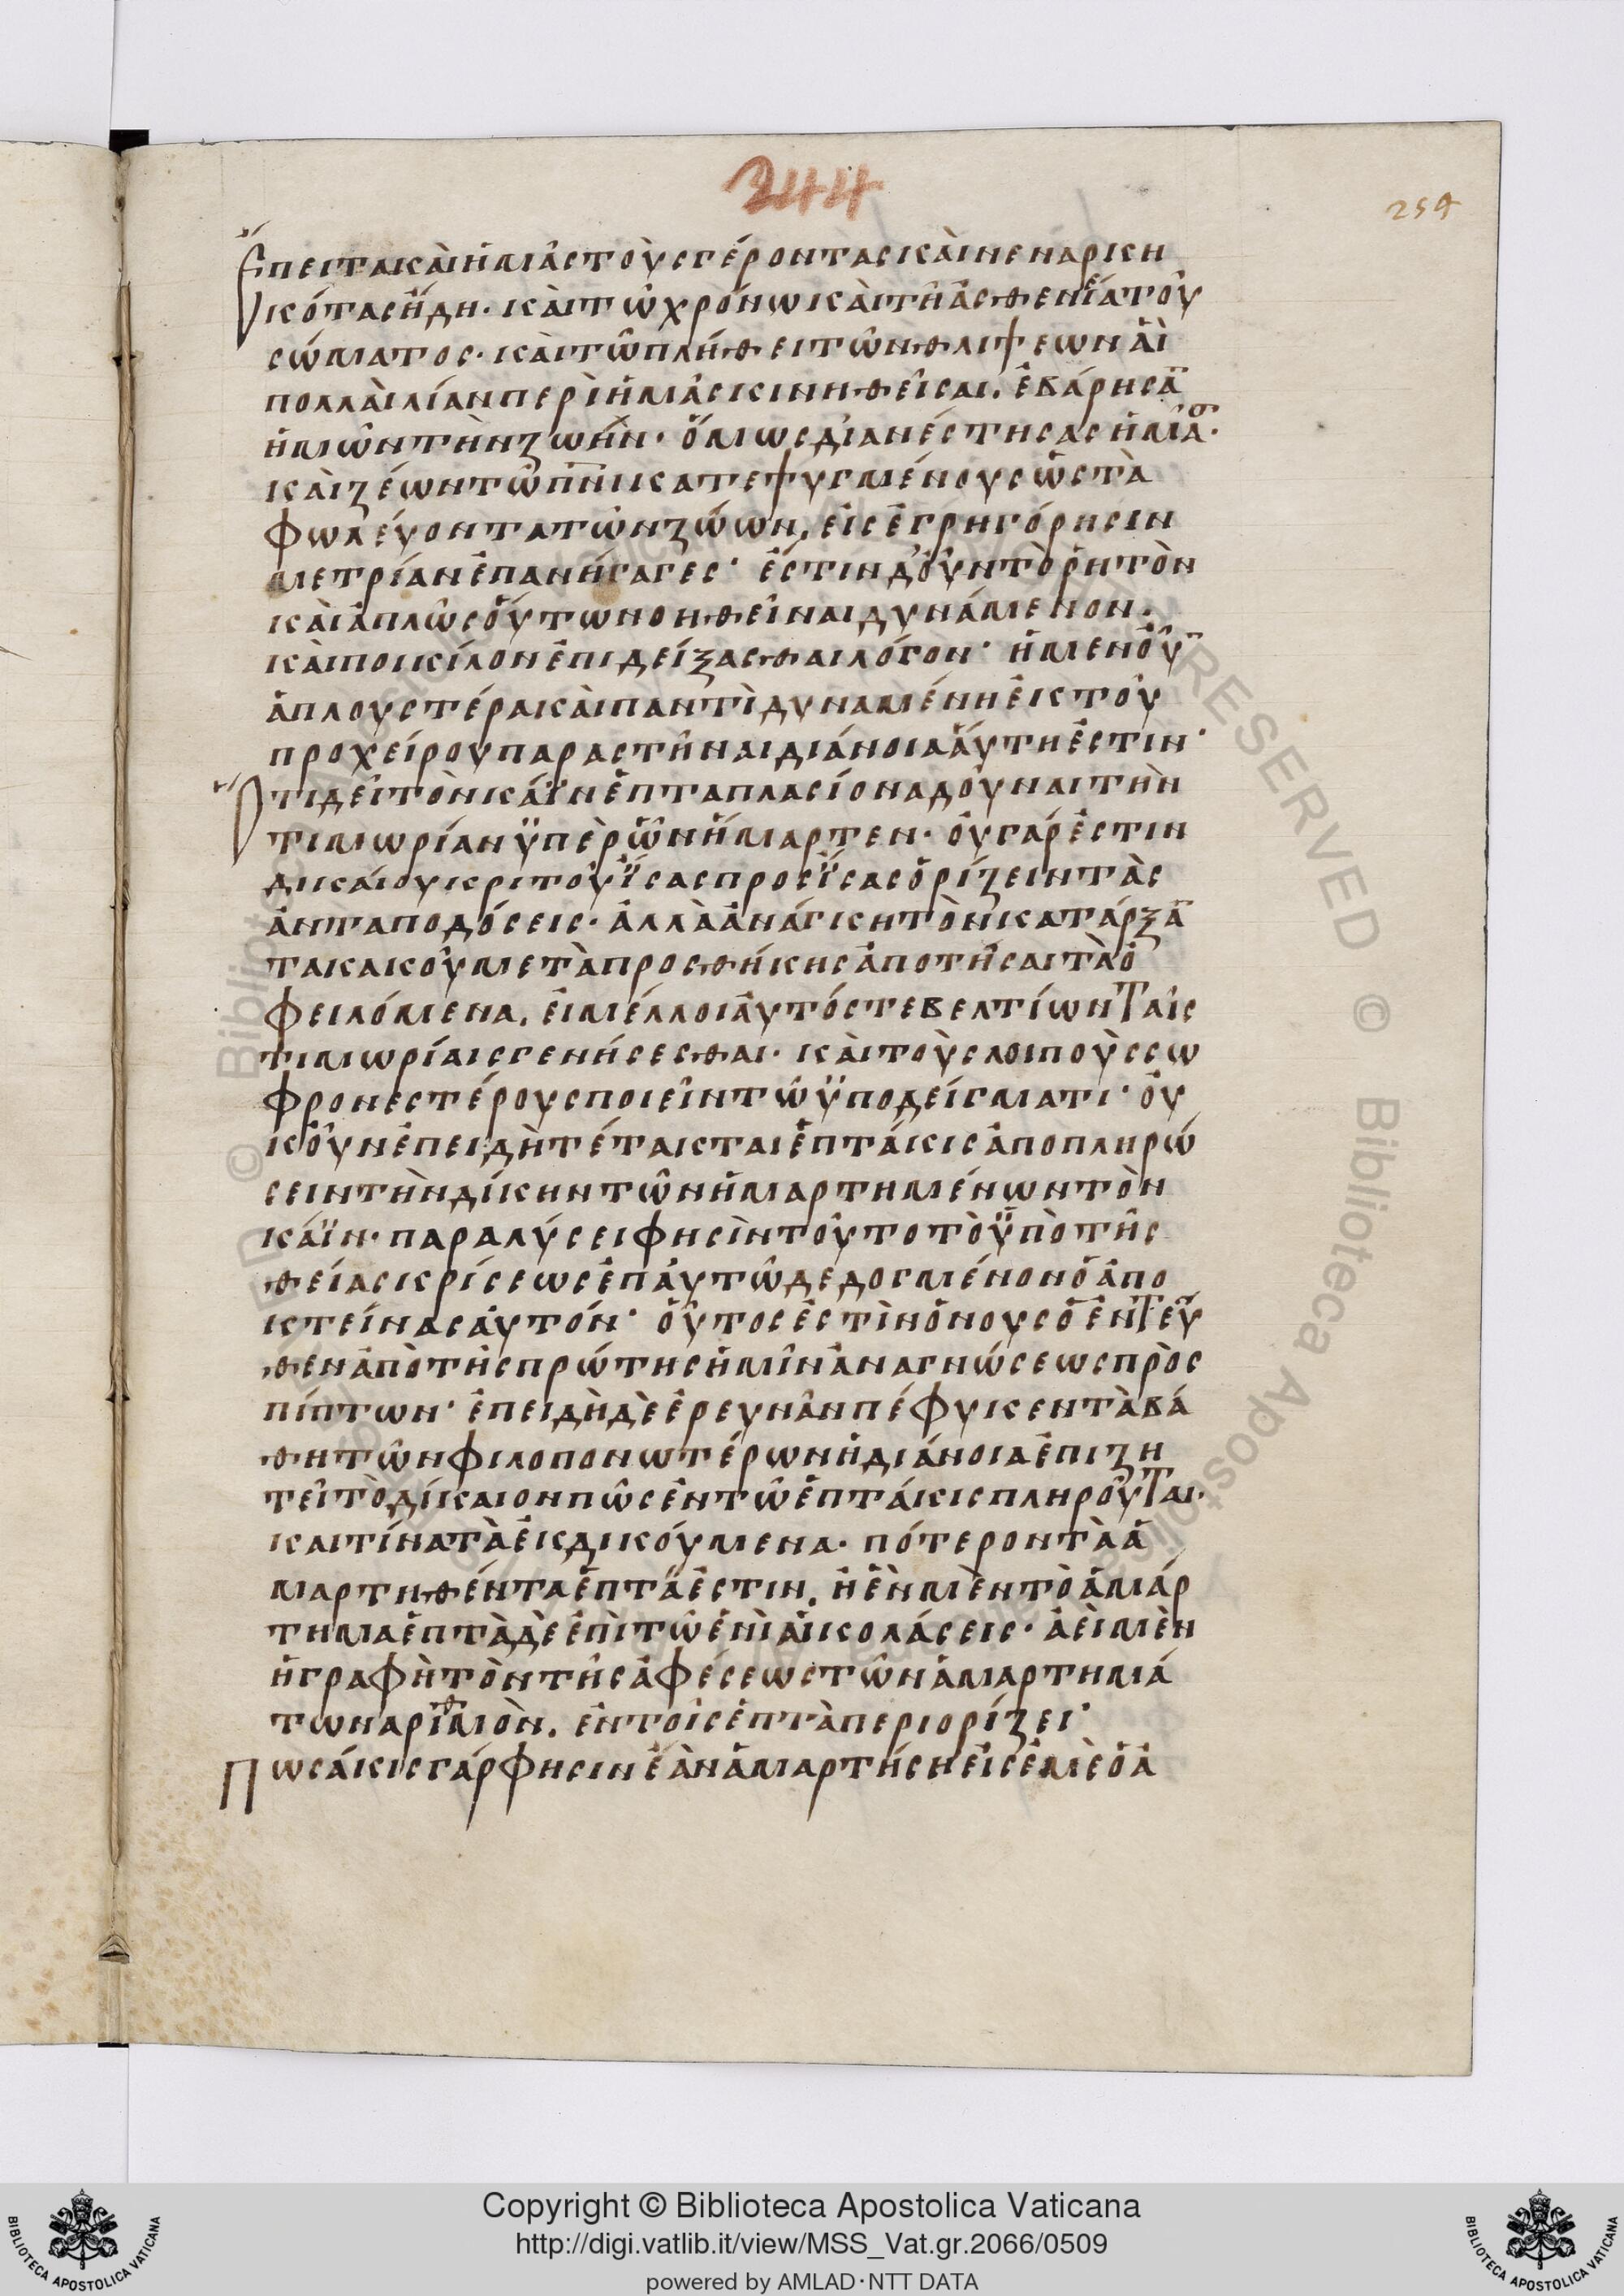 244
259
Ἔπειτα καὶ ἡμᾶς τοὺς γέροντας καὶ νεναρκη
κότας ἤδη· καὶ τῶ χρόνω καὶ τῆ ἀσθενεία τοῦ
σώματος· καὶ τῶ πλήθει τῶν θλίψεων αἳ
πολλαὶ λίαν περὶ ἡμᾶς κινηθεῖσαι, ἐβάρησα̅
ἡμῶν τὴν ζωὴν· ὅμως διανέστησας ἡμᾶς·
καὶ ζέων τῶ π̅ν̅ι κατεψυγμένους ὡς τὰ
φωλεύοντα τῶν ζώων, εἰς ἐγρηγόρησιν
μετρίαν ἐπανήγαγες· ἔστιν δ' οὖν τὸ ῥητὸν
καὶ ἁπλῶς οὕτω νοηθεῖναι δυνάμενον.
καὶ ποικίλον ἐπιδείξασθαι λόγον· ἡ μεν οὖ̅
ἁπλουστέρα καὶ παντὶ δυναμένη ἐκ τοῦ
προχείρου παραστῆναι διάνοια αὕτη ἐστιν·
Ὅτι δεῖ τὸν κάϊν ἑπταπλασίονα δοῦναι τὴν
τιμωρίαν ϋπὲρ ὧν ἥμαρτεν· οὐ γάρ ἐστιν
δικαίου κριτοῦ ΐσας προς ΐσας ὁρίζειν τὰς
ἀνταποδόσεις· ἀλλὰ ἀνάγκη τὸν κατάρξα̅
τα κακοῦ μετὰ προσθήκης ἀποτῆσαι τὰ ὀ
φειλόμενα, εἰ μέλλοι αὐτός τε βελτίων ταῖς
τιμωρίαις γενήσεσθαι· καὶ τοὺς λοιποὺς σω
φρονεστέρους ποιεῖν τῶ ϋποδείγματι· οὐ
κοῦν ἐπειδὴ τέτακται ἑπτάκις ἀποπληρώ
σειν τὴν δίκην τῶν ἡμαρτημένων τὸν
κάϊν· παραλύσει φησὶν τοῦτο τὸ ϋπὸ τῆς
θείας κρίσεως ἐπ αυτῶ δεδογμένον ὁ ἀπο
κτείνας αὐτόν· οὗτος ἐστὶν ὁ νους ὁ ἐντεῦ
θεν ἀπὸ τῆς πρώτης ἡμῖν ἀναγνώσεως πρὸς
πίπτων· ἐπειδὴ δὲ ἐρευνᾶν πέφυκεν τὰ βά
θη τῶν φιλοπονωτέρων ἡ διάνοια ἐπιζη
τεῖ τὸ δίκαιον πῶς ἐν τῶ ἑπτάκις πληροῦται·
και τίνα τὰ ἐκδικούμενα· πότερον τὰ ἁ
μαρτηθέντα ἑπτά ἐστιν, ἢ ἓν μὲν τὸ ἁμάρ
τημα ἑπτὰ δὲ ἐπὶ τῶ ἑνὶ αἱ κολάσεις· ἀεὶ μὲν
ἡ γραφὴ τὸν τῆς ἀφέσεως τῶν ἁμαρτημά
των αριθμὸν, ἐν τοῖς ἑπτὰ περιορίζει·
Πωσάκις γάρ φησιν ἐὰν ἁμαρτήση εἰς ἐμὲ ὁ ἀ
Copyright © Biblioteca Apostolica Vaticana
http://digi.vatlib.it/view/MSS_Vat.gr.2066/0509
powered by AMLAD·NTT DATA